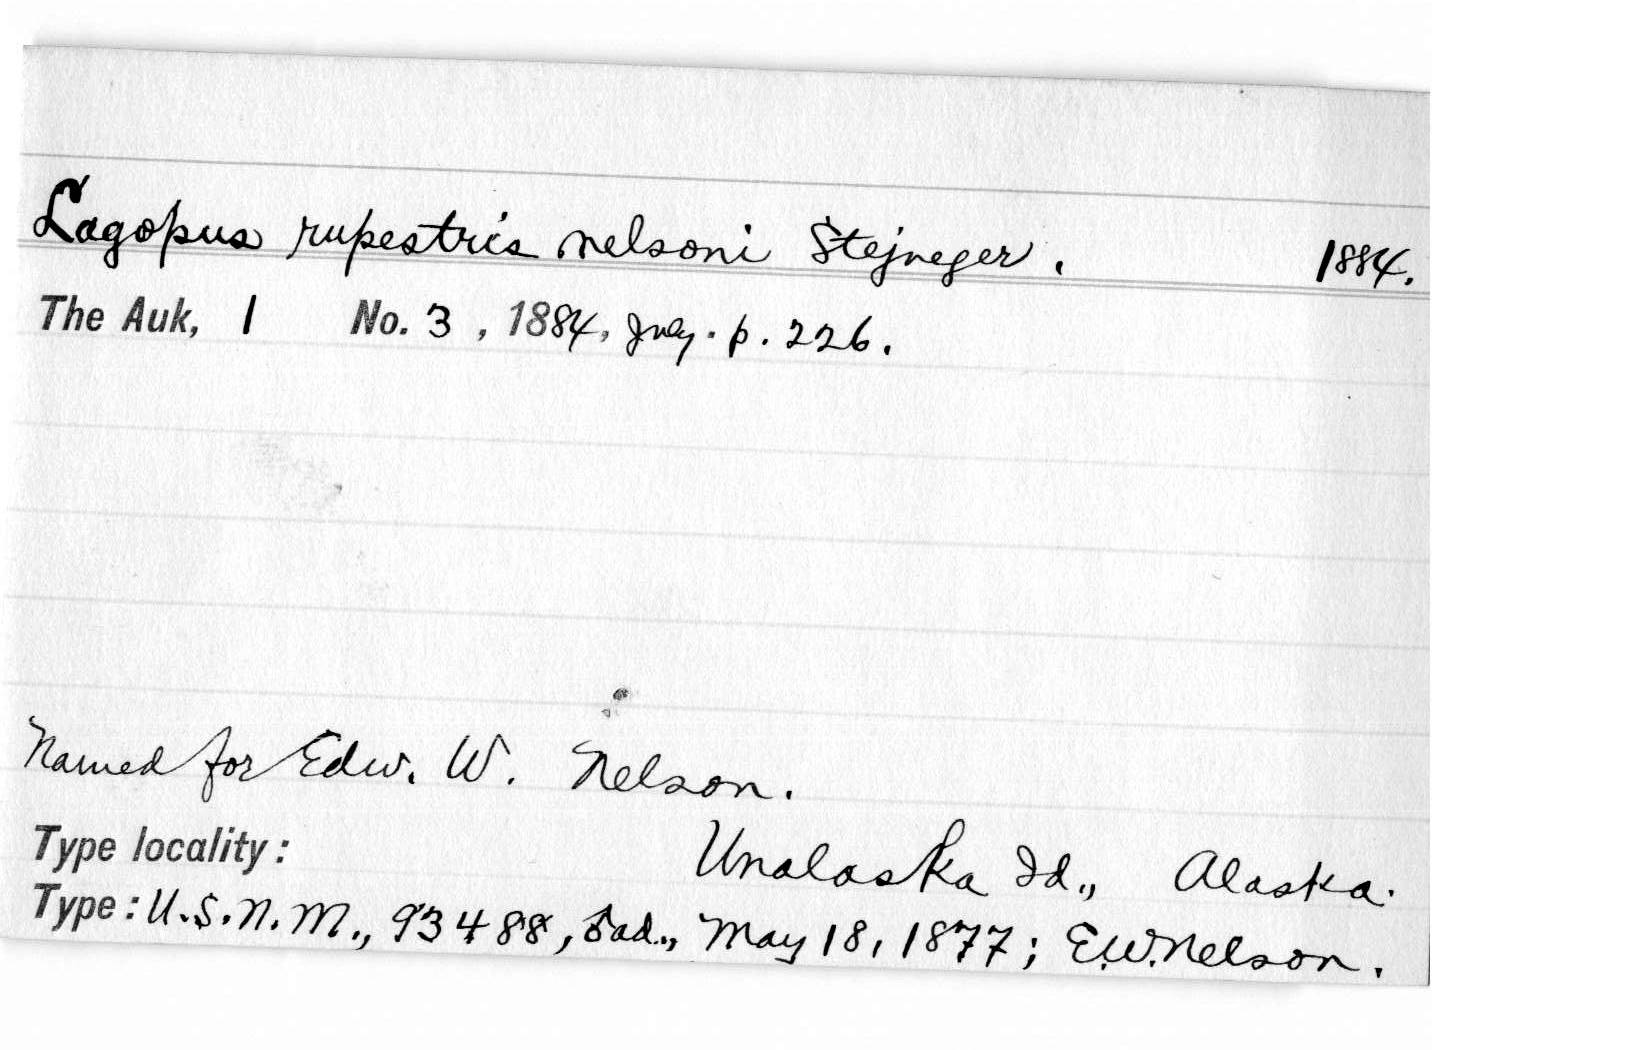 Lagopus rupestris nelsoni Stejneger. 1884.
The Auk, 1 No. 3, 1884, July. p. 226.
Named for Edw. W. Nelson.
Type locality: Unalaska Id., Alaska.
Type: U.S.N.M., 93488, ♂ad., May 18, 1877; E.W. Nelson.